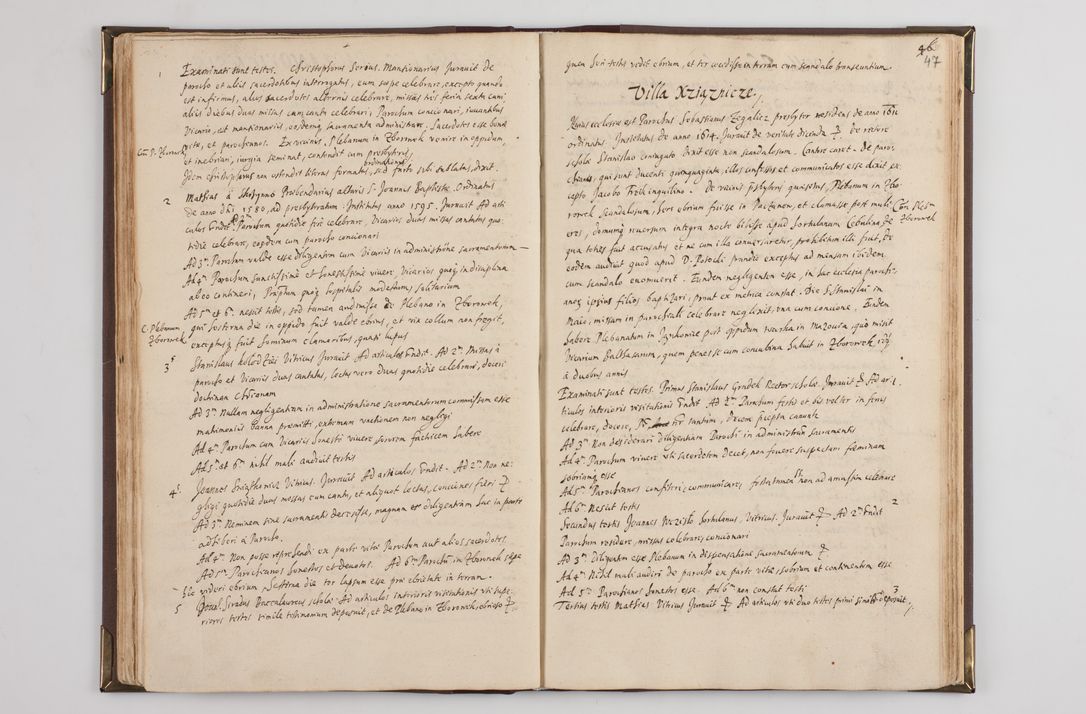 Examinati sunt testes. Christophorus Serius. Mansionarius Iurauit de
parocho et aliis sacerdotibus interrogatus, eum saepe celebrare, excepto quando
est infirmus, alios sacerdotes alternis celebrare, missas tres feria sexta cani
aliis diebus duas missas cum cantu celebrari, Parochum concionari, iuuantibus
Vicario, et mansionariis, eosdemq sacramenta administrare, Sacerdotes esse bonae
vitae, et parochianos. Ex vicinis, Plebanum in Zborowek venire in oppidum,
Cön P. Zborowek
et inebriari, iurgia seminat, contendit cum presbyteris
Idem Christophorus non ostendit literas formatas, ordinationis sed furto sibi sublatas, dixit.
2
Mathias à Prebendarius altaris S. Joannis Baptistae. Ordinatus
de anno dni 1580, ad presbyteratum. Institutus anno 1595. Iurauit Ad arti
culos Parochum quotidie fere celebrare, Vicarios duas missas cantatas quo
tidie celebrare, eosdem cum parocho concionari
Ad 3m Parochum valde esse diligentem cum Vicariis in administratione sacramentorum
Ad 4m Parochum sanctissime et honestissime vivere, Vicarios quoq in disciplina
ab eo contineri, quoq hospitalis modestum, solitarium
Ad 5m et 6m nescit testis, sed tamen audivisse de Plebano in Zborowek,
C. Plebanum
Zborowek
qui hesterna die in oppido fuit valde ebrius, et vix collum non fregit,
exceptus q fuit hominum clamoribus, quasi lupus
3
Stanislaus Vitricus Iurauit Ad articulos Ad 2m Missas à
parocho et Vicariis duas cantatas, lectas vero duas quotidie celebrare, doceri
doctrinam Christianam
Ad 3m Nullam negligentiam in administratione sacramentorum commissam esse
matrimonialis banna praemitti, extremam vnctionem non neglegi
Ad 4m Parochum cum Vicariis honeste vivere sororem habere
Ad 5m et 6m nihil mali audivit testis
4
Joannes Vitricus. Iurauit Ad articulos Ad 2m Non ne
gligi quotidie duas missas cum cantu, et aliquot lectas, conciones fieri
Ad 3m Neminem sine sacramentis decessisse, magnam et diligentiam hac in parte
adhiberi à Parocho.
Ad 4m Non posse reprehendi ex parte vitae Parochum aut alios sacerdotes.
Ad 5m Parochianos honestos et deuotos. Ad 6m Parochum in Zborowek saepe
Sic videri ebrium, hesterna die ter lapsum esse prae ebrietate in terram.
5
Baccalaureus scholae. Ad articulos interioris visitationis vti supe
riores testes simile testimonium deposuit, et de Plebano in Zborowek, ebrioso
46
47
quem hic testis vidit ebrium, et ter cecidisse in terram cum scandalo transeuntium
Villa Xziąznicze.
Huius ecclesiae est Parochus Sebastianus Zegalicz presbyter residens de anno 1611
ordinatus, Institutus de anno 1614. Iurauit de veritate dicenda. de rectore
scholae Stanislao coniugato. Dixit esse non scandalosum. Cantor caret. De paro-
chianis, qui sunt ducenti quinquaginta, illos confessos et communicatos esse dixit ex
cepto Jacobo inquilino. De vicinis presbyteris quaesitus, Plebanum in Zbo
rowek scandalosum, heri ebrium fuisse in Paczanow, et clamasse post mulieres, domumq reuersum integra nocte bibisse apud hortulanum de
Con. Pleb.
Zborowek
qua toties fuit accusatus et ne cum illa conuersaretur, prohibitum illi fuit, de
eodem audiuit quod apud D. Potocki prandio exceptus ad mensam ibidem
cum scandalo enomuerit. Eundem negligentem esse, in hac ecclesia parochi-
anos ipsius filios baptizari, prout ex metrica constat. Die S. Stanislai in
Maio, missam in parochiali celebrare neglexit, vna cum concione. Eundem
habere Plebanatum in Zyckowice post oppidum Warka in Mazouia, quo misit
Vicarium Balthasarum, quem penes se cum concubina habuit in Zborowek
à duobus annis
Examinati sunt testes. Primus Stanislaus Grudek Rector scholae. Iurauit. Ad ar-
1
ticulos interioris visitationis Ad 2m Parochum festis et bis vel ter in feriis
celebrare, docere, ter tantum, Decem praecepta canunt
Ad 3m Non desiderari diligentiam Parochi in administratione sacramentis
Ad 4m Parochum vivere vti sacerdotem decet, non fouere suspectam foeminam
sobriumq esse
Ad 5m Parochianos confiteri, communicare, festa tamen non ad amussim celebrare
Ad 6m Nescit testis
2
Secundus testis Joannes hortulanus, Vitricus. Iurauit Ad 2m
Parochum residere, missas celebrare, concionari
Ad 3m Diligentem esse Plebanum in dispensatione sacramentorum
Ad 4m Nihil mali audire de parocho ex parte vitae, sobrium et continentem esse
Ad 5m Parochianos honestos esse. Ad 6m non constat testi
3
Tertius testis Mathias Vitricus Iurauit Ad articulos vti duo testes primi similiter deposuit.